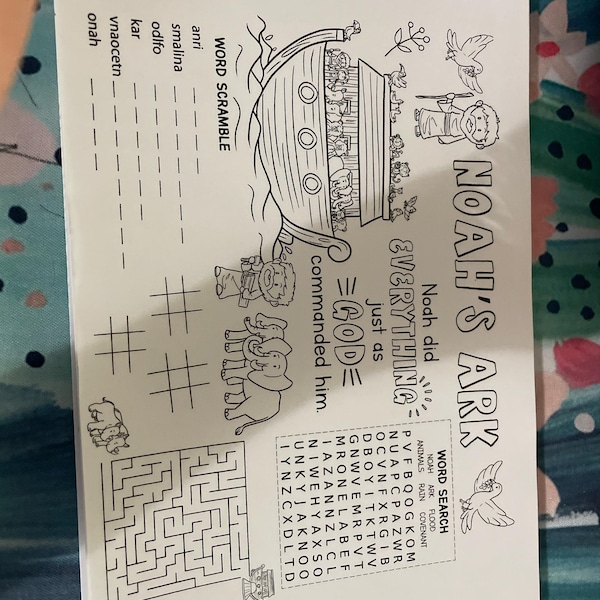 NOAH'S ARK
Noah did
EVERYTHING
just as
GOD
commanded him.
WORD SEARCH
NOAH ARK FLOOD
ANIMALS RAIN COVENANT
P V F B C O G K O M
N U A P C P A Z W R
O C V N F X R G I B
D B O Y I T K T W V
G N W V E M R P V T
M R O N E L A B E F
I A Z A N N Z L C L
N I W E H Y A X S O
U N K Y J A K N O O
I Y N Z C X D L T D
WORD SCRAMBLE
anri _ _ _ _
smalina _ _ _ _ _ _ _
odlfo _ _ _ _ _
kar _ _ _
vnaocetn _ _ _ _ _ _ _ _
onah _ _ _ _